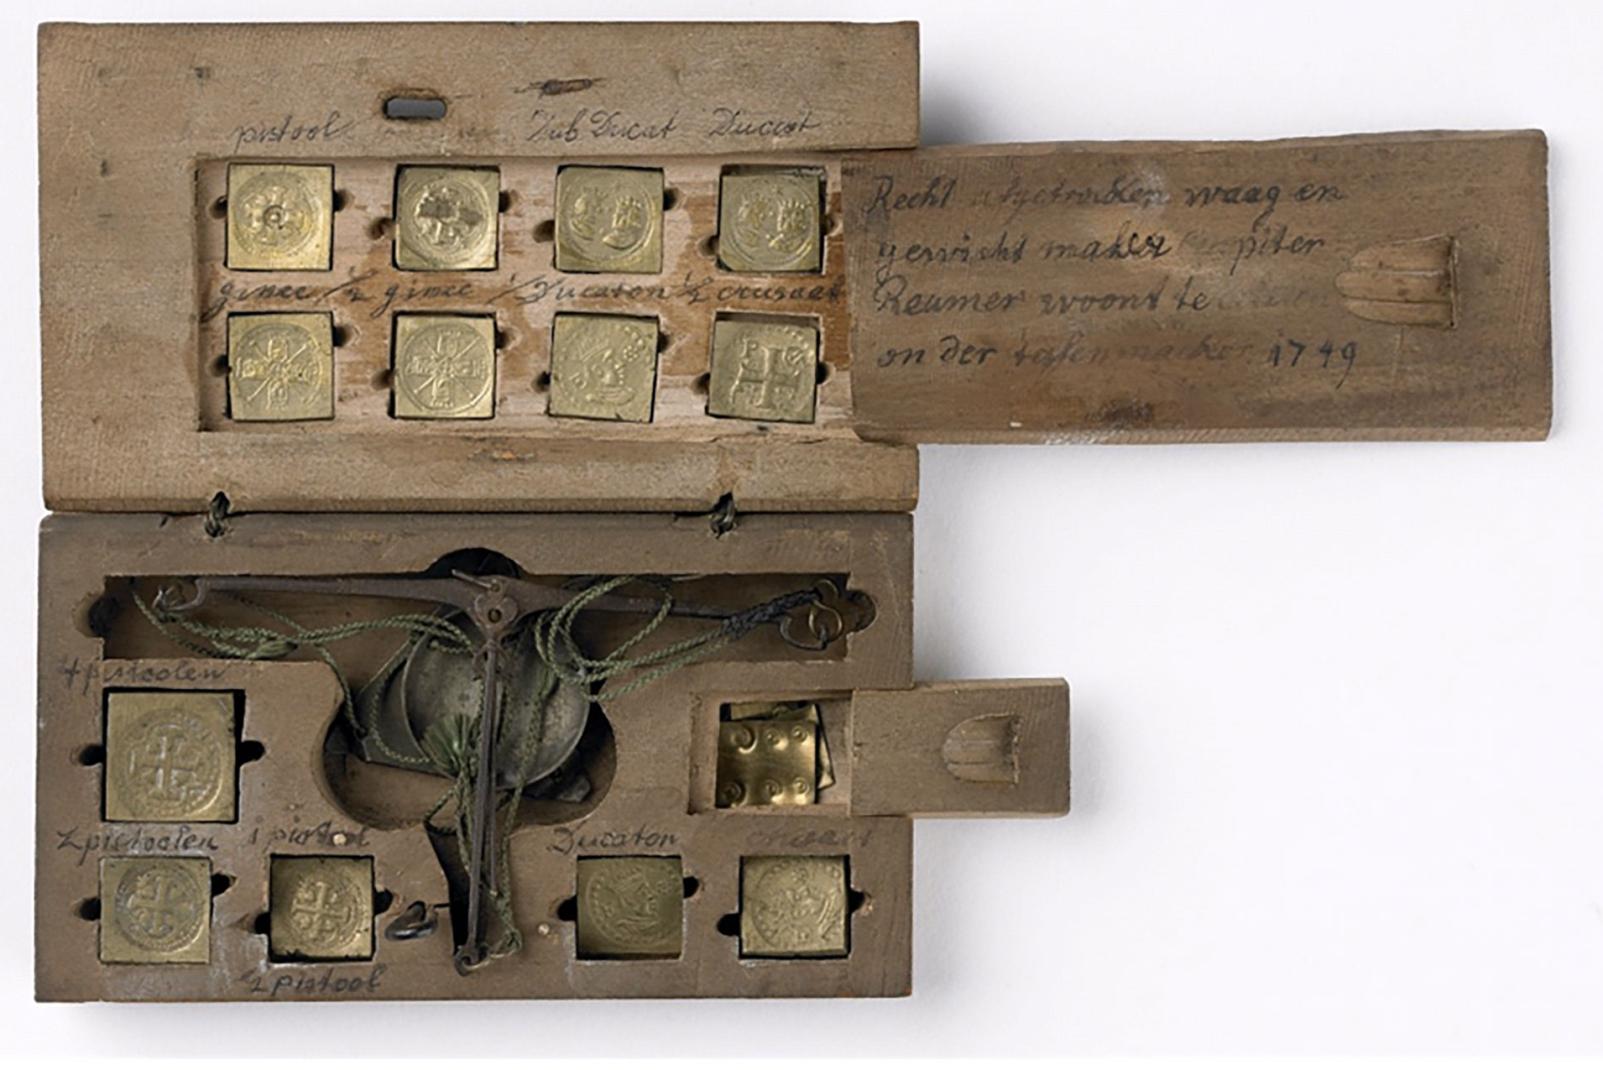 pistool Dub Ducat Ducaat
ginee 1/2 ginee 1/2 Ducaton 1/2 crusaat
Recht waag en
gewicht maker piter
Reumer woont te
on der 1749
4 pistoolen
2 pistoolen 1 pistool Ducaton
1/2 pistool